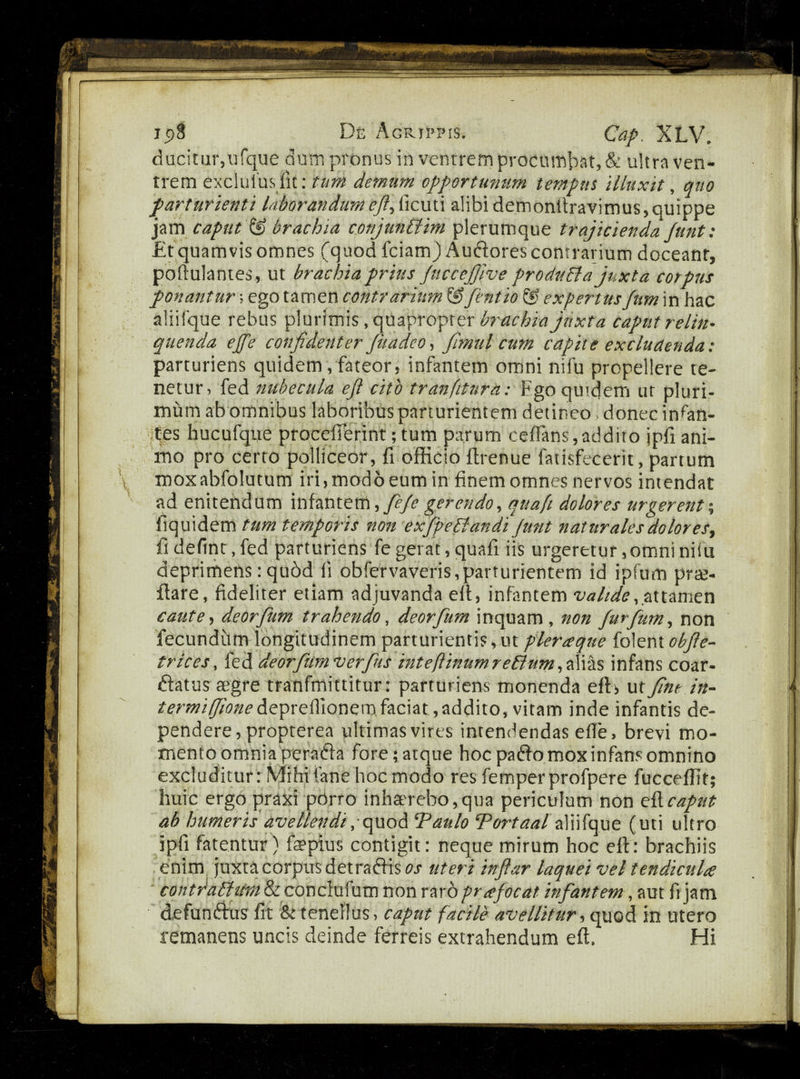 198 De Agrippis. Cap. XLV.
ducitur, uſque dum pronus in ventrem procumbat, & ultra ven-
trem excluſus ſit: tum demum opportunum tempus illuxit, quo
parturienti laborandum eſt, ſicuti alibi demonſtravimus, quippe
jam caput & brachia conjunctim plerumque trajicienda ſunt:
Et quamvis omnes (quod ſciam) Auctores contrarium doceant,
poſtulantes, ut brachia prius ſucceſſive producta juxta corpus
ponantur; ego tamen contrarium & ſentio & expertus ſum in hac
aliiſque rebus plurimis, quapropter brachia juxta caput relin-
quenda eſſe confidenter ſuadeo, ſimul cum capite excludenda:
parturiens quidem, fateor, infantem omni niſu propellere te-
netur, ſed nubecula eſt citò tranſitura: Ego quidem ut pluri-
mùm ab omnibus laboribus parturientem detineo, donec infan-
tes hucuſque proceſſerint; tum parum ceſſans, addito ipſi ani-
mo pro certo polliceor, ſi officio ſtrenue ſatisfecerit, partum
mox abſolutum iri, modò eum in finem omnes nervos intendat
ad enitendum infantem, ſeſe gerendo, quaſi dolores urgerent;
ſiquidem tum temporis non exſpectandi ſunt naturales dolores,
ſi deſint, ſed parturiens ſe gerat, quaſi iis urgeretur, omni niſu
deprimens: quòd ſi obſervaveris, parturientem id ipſum præ-
ſtare, fideliter etiam adjuvanda eſt, infantem valide, attamen
caute, deorſum trahendo, deorſum inquam, non ſurſum, non
ſecundùm longitudinem parturientis, ut pleræque ſolent obſte-
trices, ſed deorſum verſus inteſtinum rectum, aliàs infans coar-
ctatus ægre tranſmittitur: parturiens monenda eſt, ut ſine in-
termiſſione depreſſionem faciat, addito, vitam inde infantis de-
pendere, propterea ultimas vires intendendas eſſe, brevi mo-
mento omnia peracta fore; atque hoc pacto mox infans omnino
excluditur: Mihi ſane hoc modo res ſemper proſpere ſucceſſit;
huic ergo praxi porro inhærebo, qua periculum non eſt caput
ab humeris avellendi, quod Paulo Portaal aliiſque (uti ultro
ipſi fatentur) ſæpius contigit: neque mirum hoc eſt: brachiis
enim juxta corpus detractis os uteri inſtar laquei vel tendiculæ
contractum & concluſum non raro præfocat infantem, aut ſi jam
defunctus ſit & tenellus, caput facilè avellitur, quod in utero
remanens uncis deinde ferreis extrahendum eſt. Hi